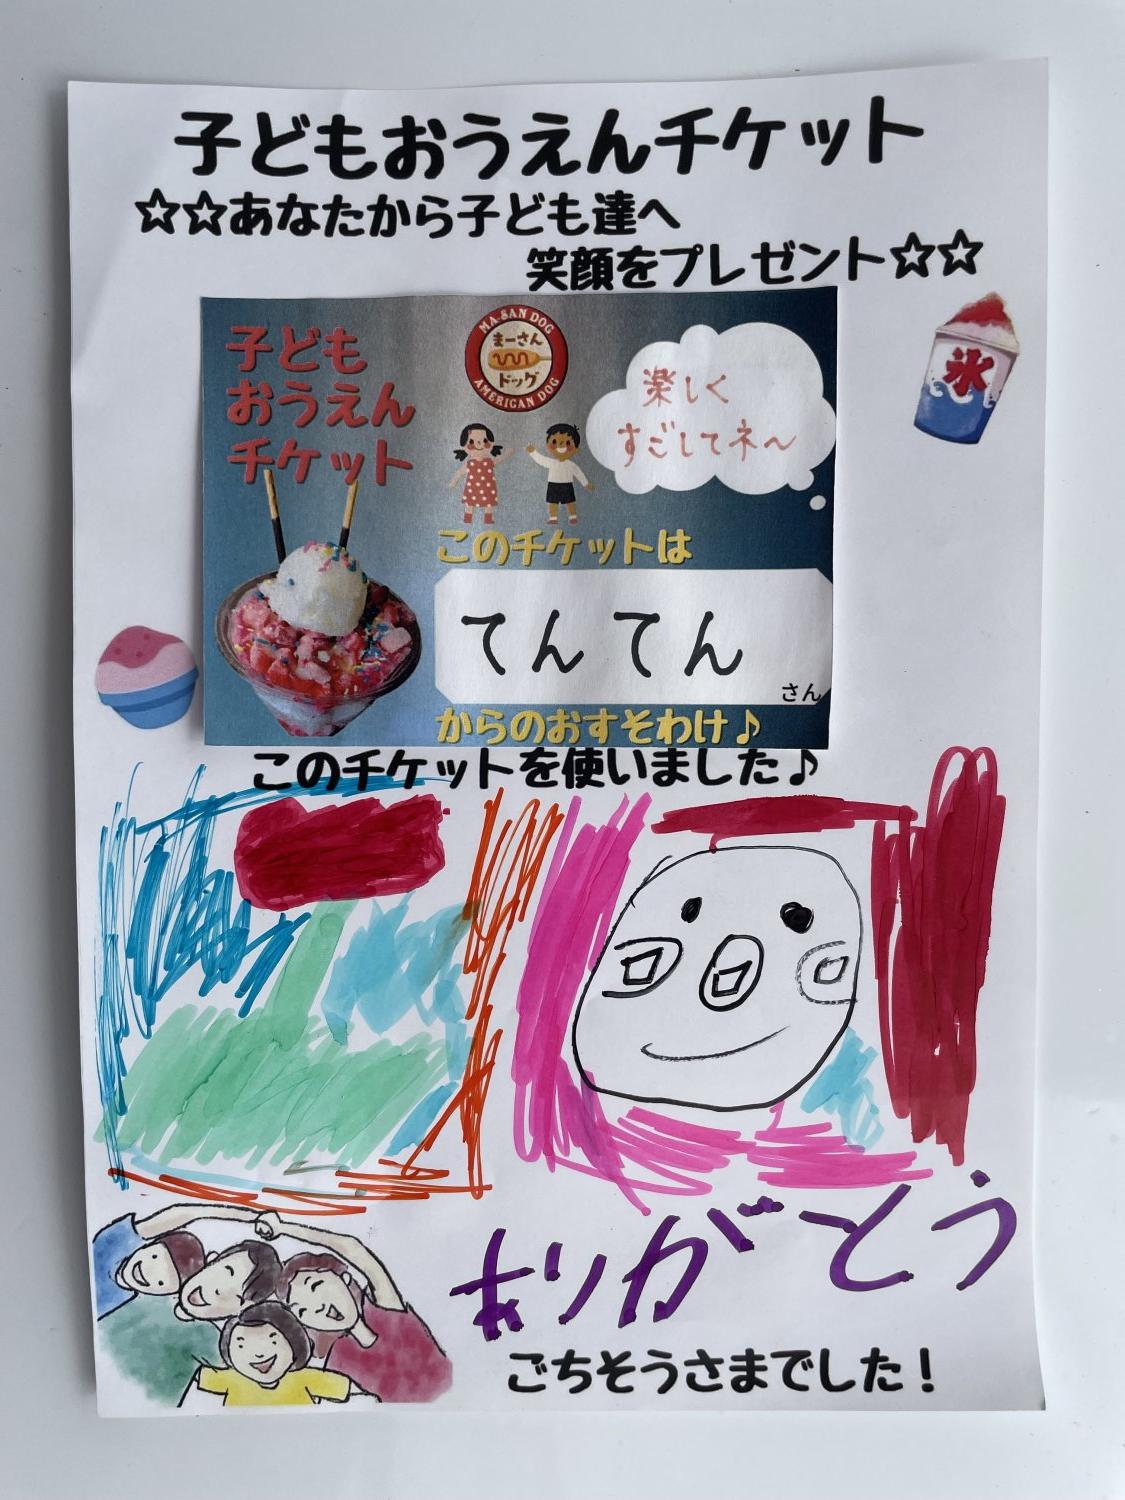 子どもおうえんチケット
☆☆あなたから子ども達へ
笑顔をプレゼント☆☆
氷
子ども
おうえん
チケット
MA-SAN DOG
まーさん
ドッグ
AMERICAN DOG
楽しく
すごしてネ～
このチケットは
てんてん
さん
からのおすそわけ♪
このチケットを使いました♪
ありがとう
ごちそうさまでした！